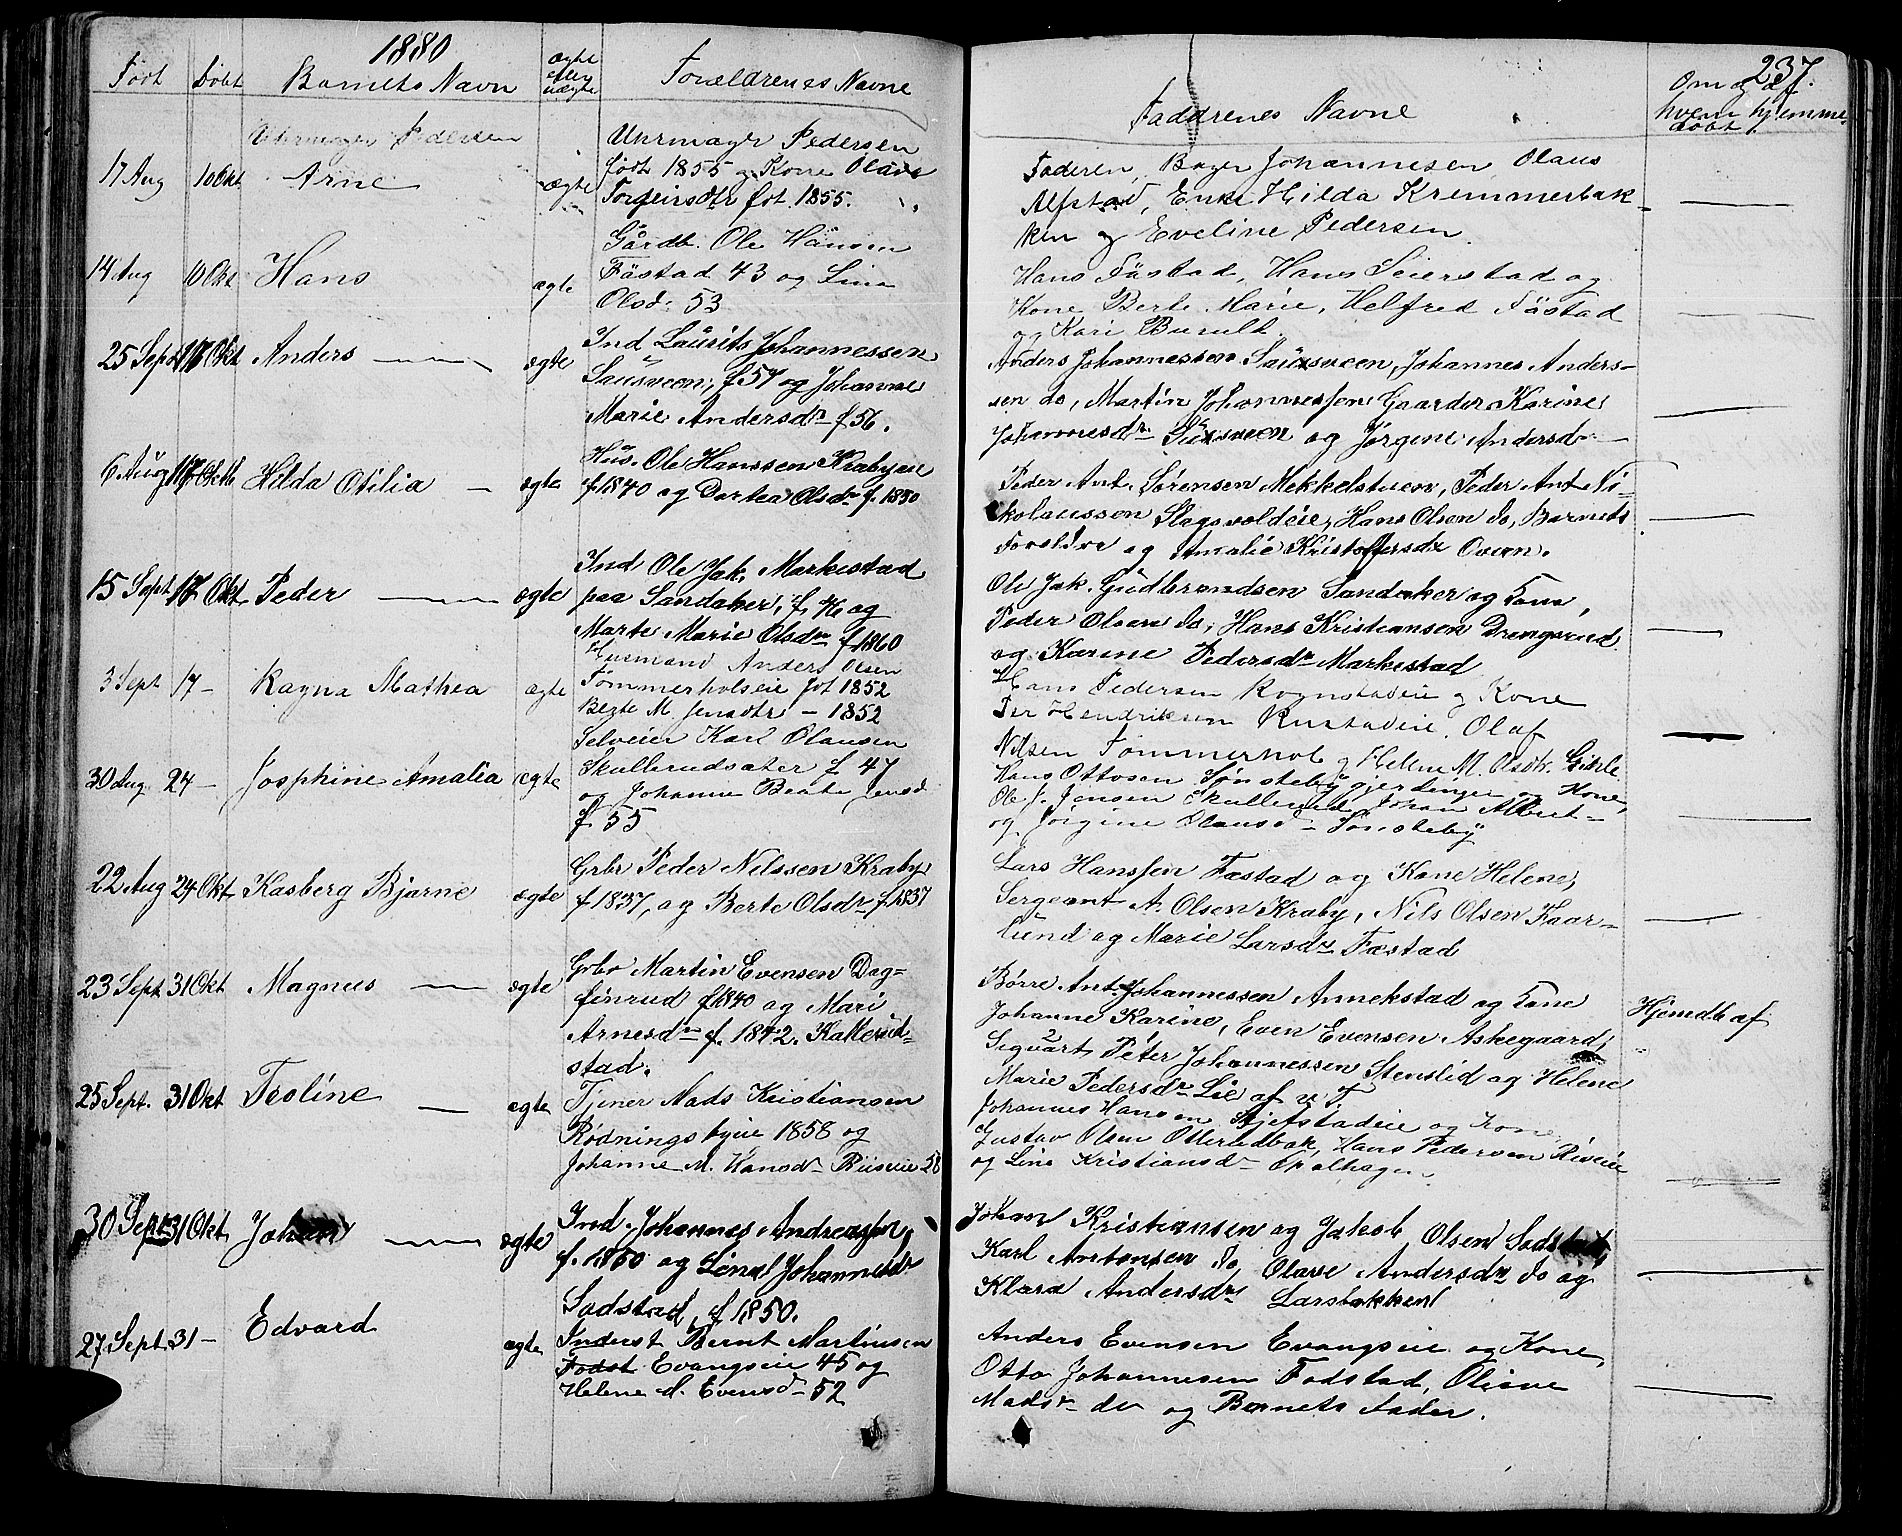 1880
237.
Født Døbt Barnets Navn ægte eller uægte Forældrenes Navne
Faddrenes Navne Om og af hvem hjemmedøbt
Uhrmager Pedersen
17 Aug 10 Okt Arne ægte
Uhrmager Pedersen
født 1855 og Kone Olave
Torgeirsdtrføt 1855.
Faderen, Bager Johannesen, Olaus
Alfstad, Enke Hilda Kremmerbak-
ken og Eveline Pedersen.
14 Aug 10 Okt Hans ægte
Gårdb. Ole Hansen
Fåstad 43 og Lina
Olsd. 53
Hans Fåstad, Hans Seierstad og
Kone Berte Marie, Helfred Fåstad
og Kari
25 Sept 17 Okt Anders ægte
Ind Laurits Johannessen
Sausveen, f 57 og Johanne
Marie Andersdr f 56.
Anders Johannessen Sausveen, Johannes Anders-
sen do, Martin Johannessen Gaarder Karine
Johannesdr Sausveen og Jørgine Andersdr
6 Aug 17 Oktb Hilda Otilia ægte
Hus. Ole Hanssen Krabyeie
f 1840 og Dortea Olsdr f. 1830
Peder Ant. Sørensen Mekkelstuen, Peder Ant Ni-
kolaussen Slagsvoldeie, Hans Olsen do, Barnets
Foreldre og Amalie Kristoffersdr Osven.
15 Sept 17 Okt Peder ægte
Ind Ole Jak. Markestad
paa Sandaker, f. 46 og
Marte Marie Olsdr f 1860
Ole Jak. Gudbrandsen Sandaker og Kone,
Peder Olsen do, Hans Kristiansen Drengsrud
og Karine Pedersdr Markestad
3 Sept 17 — Ragna Mathea ægte
Husmand Anders Olsen
Tømmerholseie føt 1852
Berte M. Jensdtr — 1852
Hans Pedersen Rognstadeie og Kone
Per Hendriksen Rustadeie, Olaf
Nilsen Tømmerhol og Helene M. Olsdtr. Gihle
30 Aug 24 — Josphine Amalia ægte
Selveier Karl Olausen
Skullerudsæter f 47
og Johanne Beate Jensd
f 55
Hans Ottosen Tønstebygjerdinger og Kone,
Ole J. Jensen Skullerud, Johan Albert-
og Jørgine Olausd — Tønsteby
22 Aug 24 Okt Kasberg Bjarne ægte
Grbr Peder Nilssen Kraby
f 1837, og Berte Olsdr f 1837
Lars Hanssen Fæstad og Kone Helene,
Sergeant A. Olsen Kraby, Nils Olsen Kaar-
lund og Marie Larsdr Fæstad
23 Sept 31 Okt Magnus ægte
Grbr Martin Evensen Dag-
finrud f 1840 og Mari
Arnesdr f. 1842.
stad.
Børre Ant. Johannessen Annekstad og Kone
Johanne Karine, Even Evensen Askegaard,
Sigvart Peter Johannessen Stenslid og Helene
Marie Pedersdr Lie af v. T
Hjemdb af
25 Sept. 31 Okt Teoline ægte
Tjener Mads Kristiansen
Rødningsbyeie 1858 og
Johanne M. Hansdr Biiseie 58
Johannes Hansen Hjelstadeie og Kone
Gustav Olsen Otterludbak, Hans Pedersen Riseie
og Lina Kristiansdr Opalhagen
30 Sept 31 Okt Johan ægte
Ind. Johannes Andreassen
f. 1860 og Lina Johannesdr
Sodstad, f 1850.
Johan Kristiansen og Jakob Olsen Sodstad,
Karl Antonsen do, Olave Andersdr do og
Klara Andersdr Larsbakken
27 Sept 31 — Edvard ægte
Inderst Bernt Martinsen
Fodst Evangseie 45 og
Helene M. Evensdr — 52
Anders Evensen Evangseie og Kone,
Otto Johannesen Fodstad, Oliane
Madsdr do og Barnets Fader.